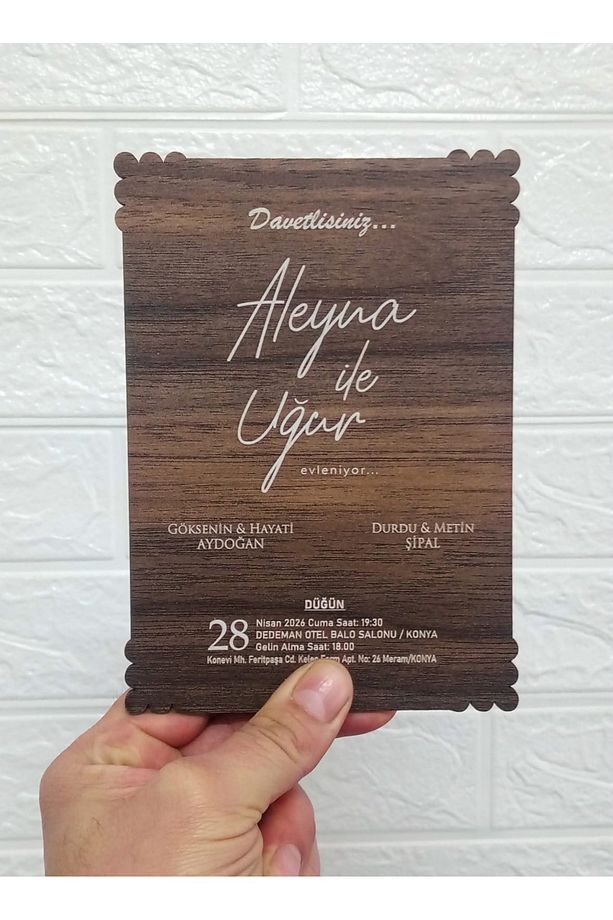 Davetlisiniz...
Aleyna
ile
Uğur
evleniyor...
GÖKSENİN & HAYATİ
AYDOĞAN
DURDU & METİN
ŞİPAL
DÜĞÜN
28
Nisan 2026 Cuma Saat: 19:30
DEDEMAN OTEL BALO SALONU / KONYA
Gelin Alma Saat: 18.00
Konevi Mh. Feritpaşa Cd. Apt. No: 26 Meram/KONYA